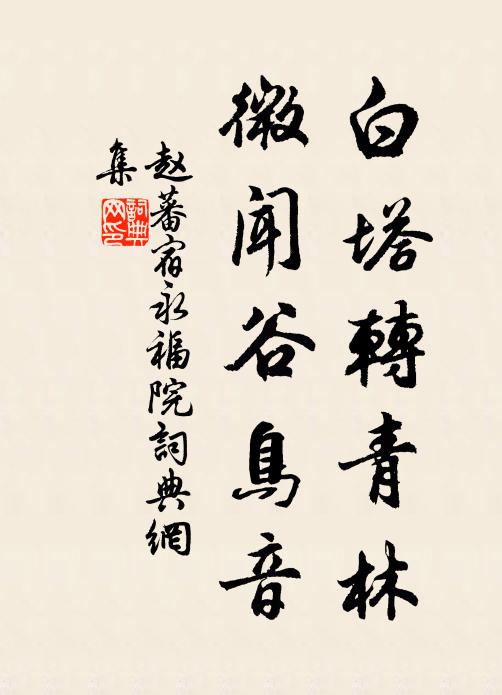 白塔轉青林
微聞谷鳥音
赵蕃宿永福院詞典網
集
詞典
网印